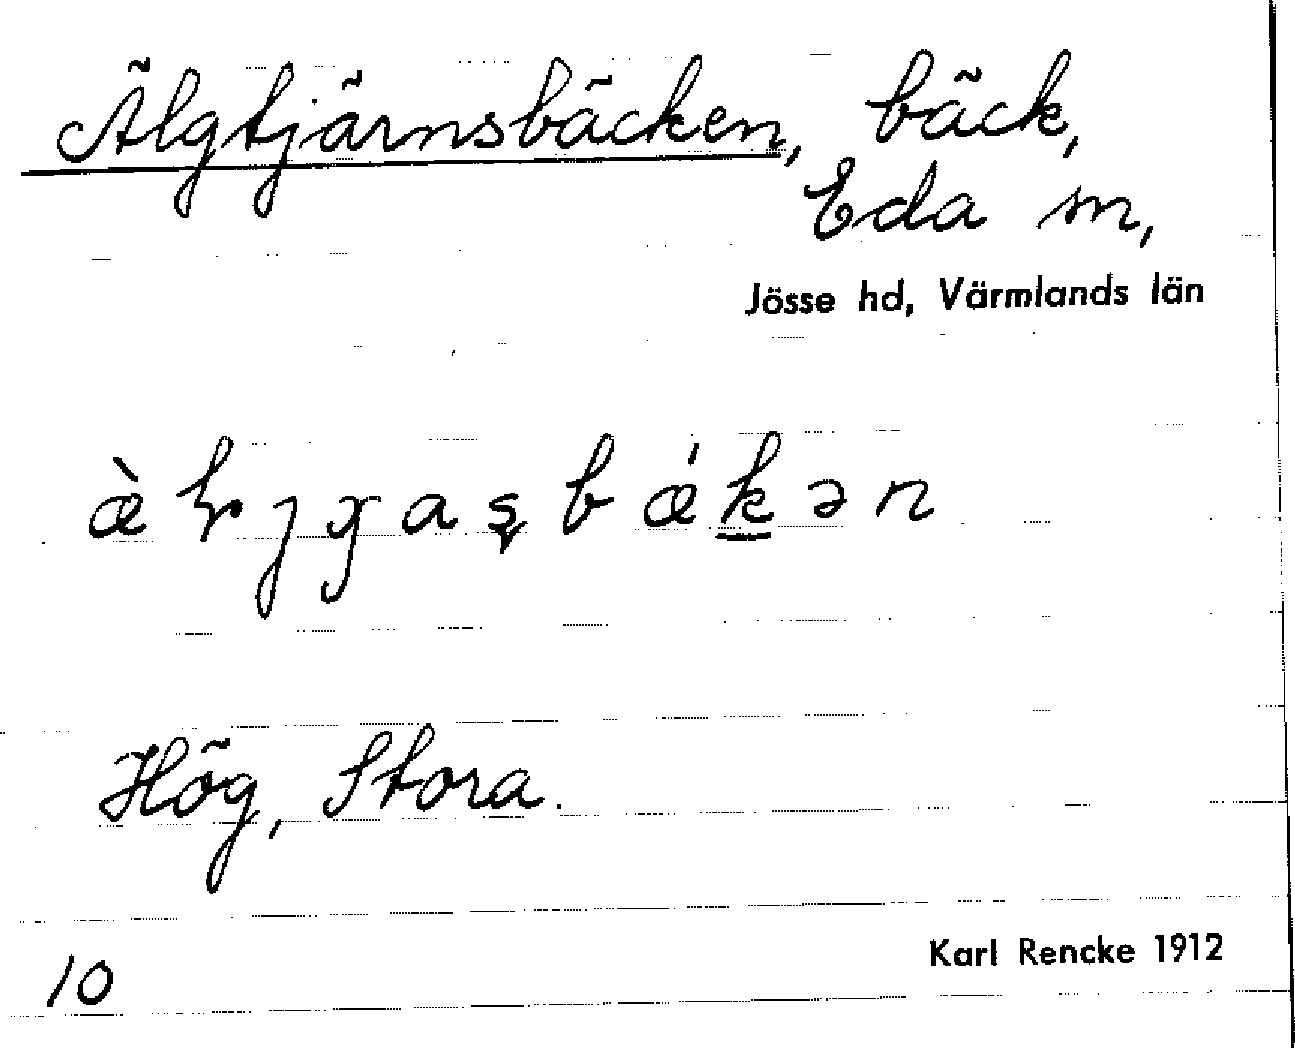 Älgtjärnsbäcken, bäck,
Eda sn,
Jösse hd, Värmlands län
Hög, Stora.
Karl Rencke 1912
10